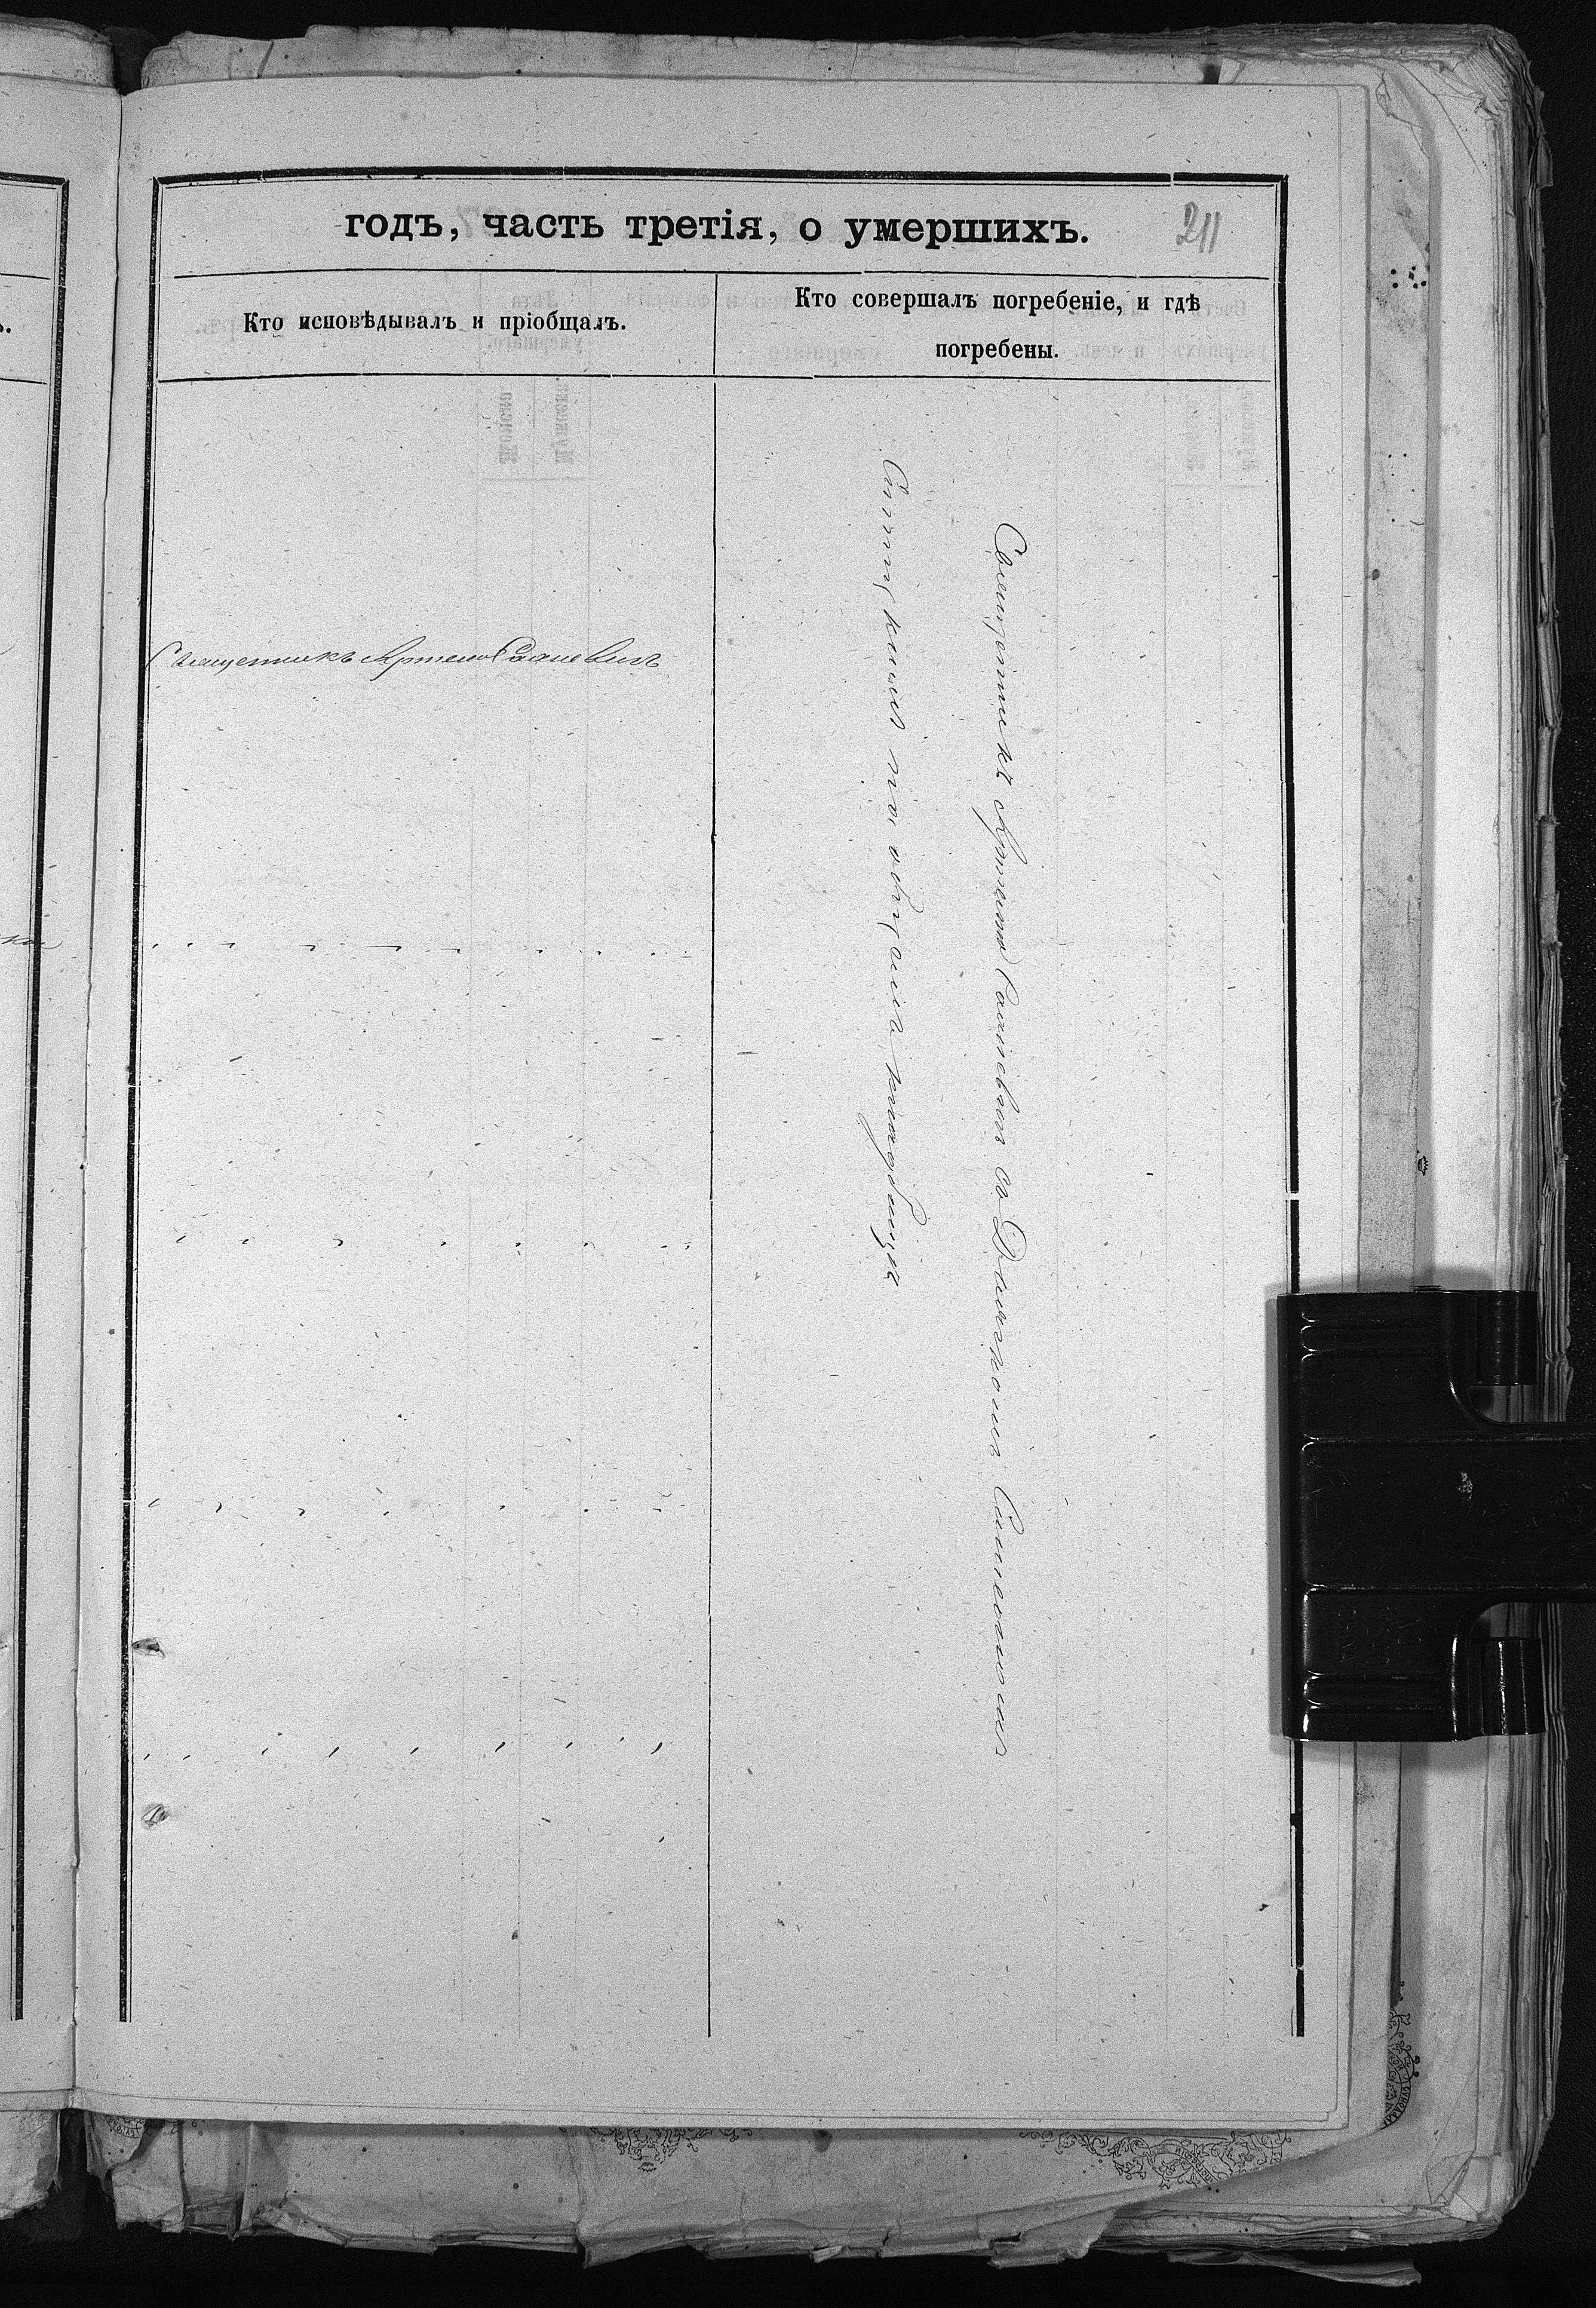 годъ, часть третія, о умершихъ.
211
Кто исповѣдывалъ и пріобщалъ.
Кто совершалъ погребеніе, и гдѣ
погребены.
Священникъ Артемій
Священникъ Артемій съ Дьячкомъ
на общемъ кладбищѣ